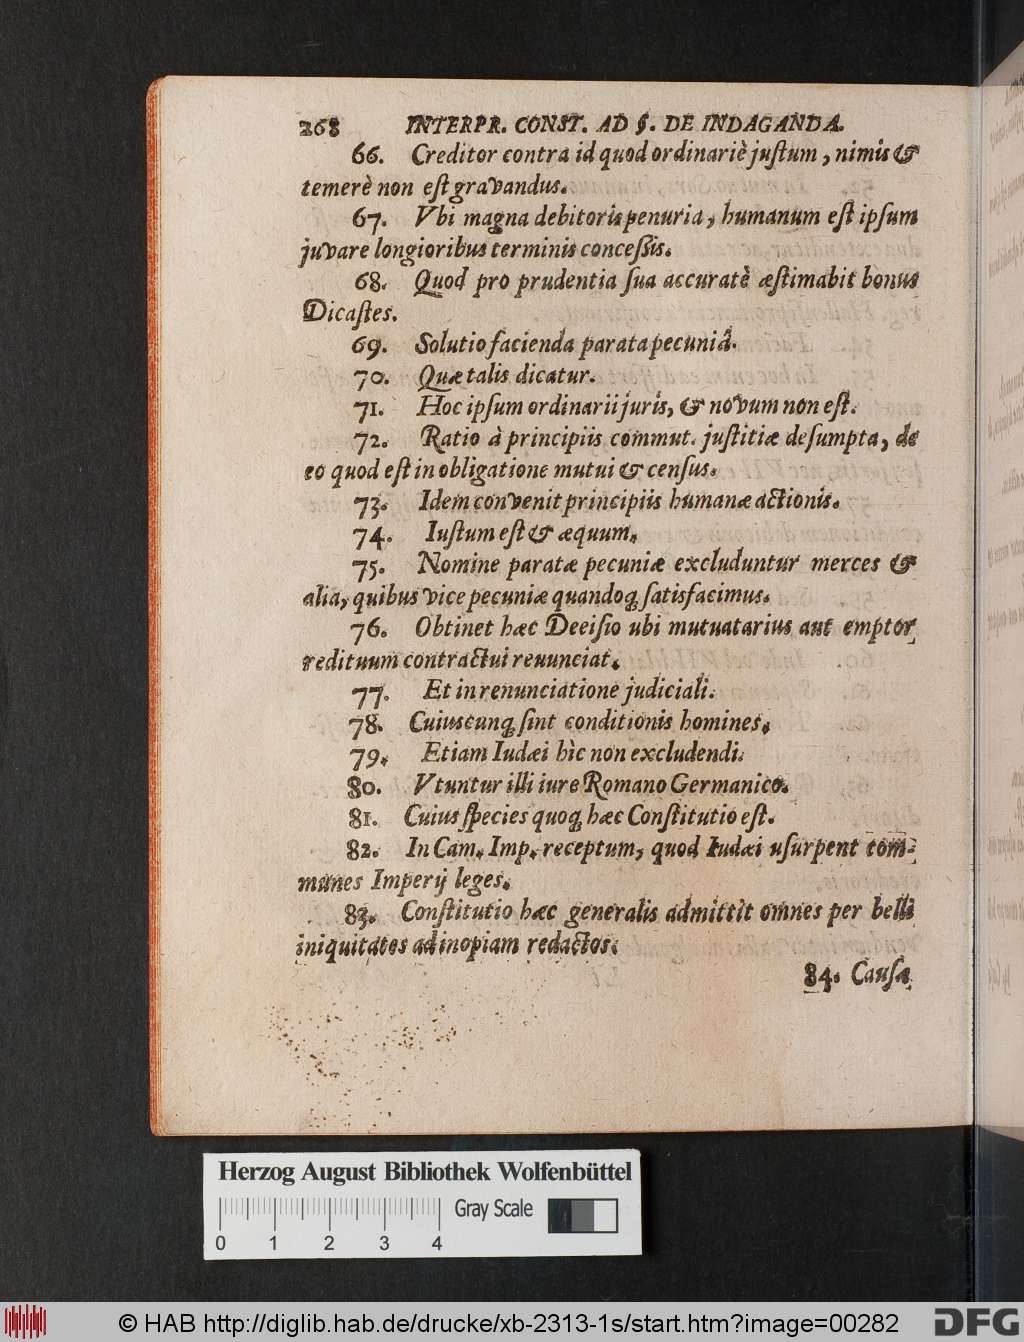 268 INTERPR. CONST. AD §. DE INDAGANDA.
66. Creditor contra id quod ordinariè juſtum, nimis &
temerè non eſt gravandus.
67. Vbi magna debitoris penuria, humanum eſt ipſum
juvare longioribus terminis conceſſis.
68. Quod pro prudentia ſua accuratè æſtimabit bonus
Dicaſtes.
69. Solutio facienda parata pecuniâ.
70. Quæ talis dicatur.
71. Hoc ipſum ordinarii juris, & novum non eſt.
72. Ratio à principiis commut. juſtitiæ deſumpta, de
eo quod eſt in obligatione mutui & cenſus.
73. Idem convenit principiis humanæ actionis.
74. Iuſtum eſt & æquum.
75. Nomine paratæ pecuniæ excluduntur merces &
alia, quibus vice pecuniæ quandoq; ſatisfacimus.
76. Obtinet hæc Deeiſio ubi mutuatarius aut emptor
redituum contractui reuunciat.
77. Et in renunciatione judiciali.
78. Cuiuscunq; ſint conditionis homines.
79. Etiam Iudæi hìc non excludendi.
80. Vtuntur illi iure Romano Germanico.
81. Cuius ſpecies quoq; hæc Conſtitutio eſt.
82. In Cam. Imp. receptum, quod Iudæi uſurpent com-
munes Imperij leges.
83. Conſtitutio hæc generalis admittit omnes per belli
iniquitates ad inopiam redactos.
84. Cauſa
Herzog August Bibliothek Wolfenbüttel
Gray Scale
0 1 2 3 4
© HAB http://diglib.hab.de/drucke/xb-2313-1s/start.htm?image=00282
DFG